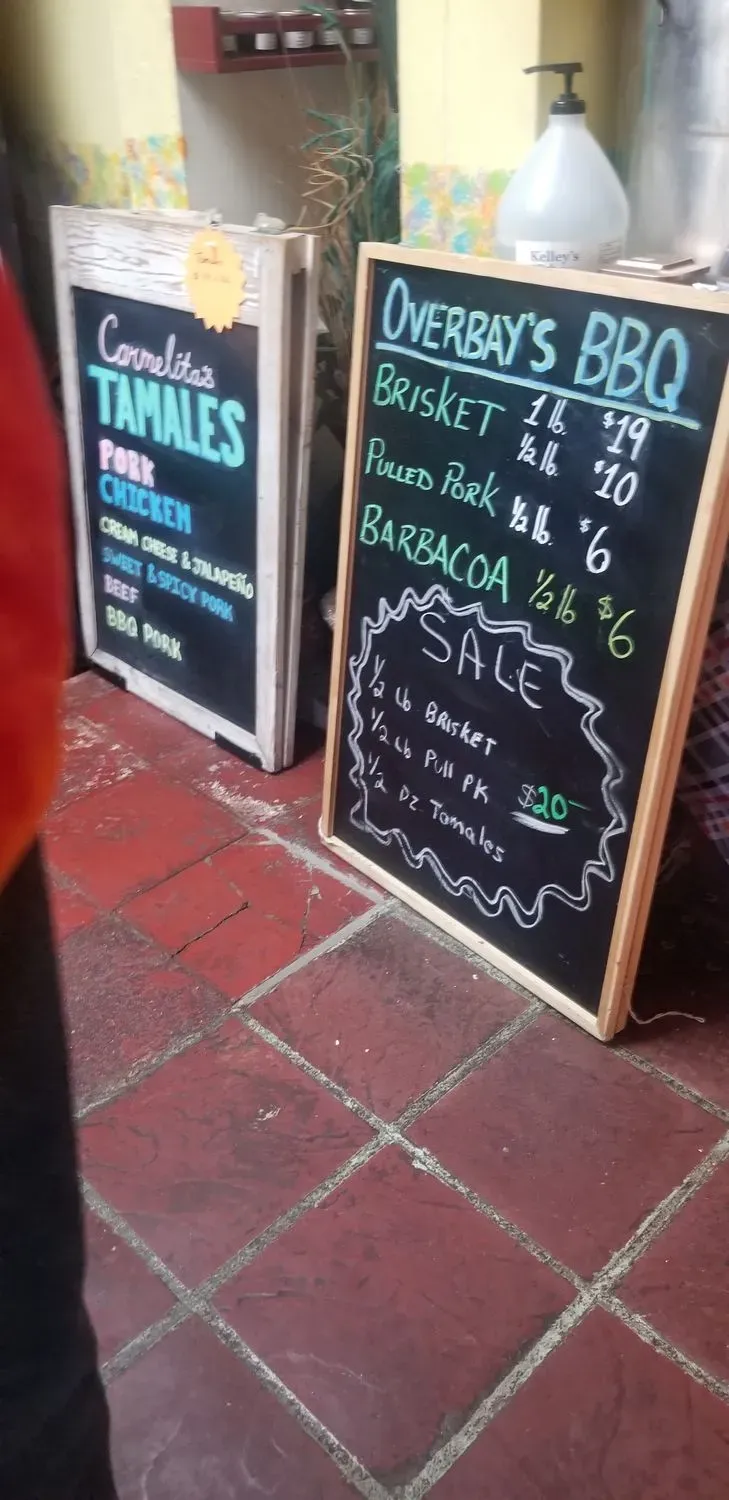 Carmelita's
TAMALES
PORK
CHICKEN
CREAM CHEESE & JALAPEÑO
SWEET & SPICY PORK
BEEF
BBQ PORK
Kelley's
OVERBAY'S BBQ
BRISKET 1 lb. $19
1/2 lb. $10
PULLED PORK 1/2 lb. $6
BARBACOA 1/2 lb $6
SALE
1/2 Lb BRISKET
1/2 Lb Pull PK $20-
1/2 DZ. Tamales